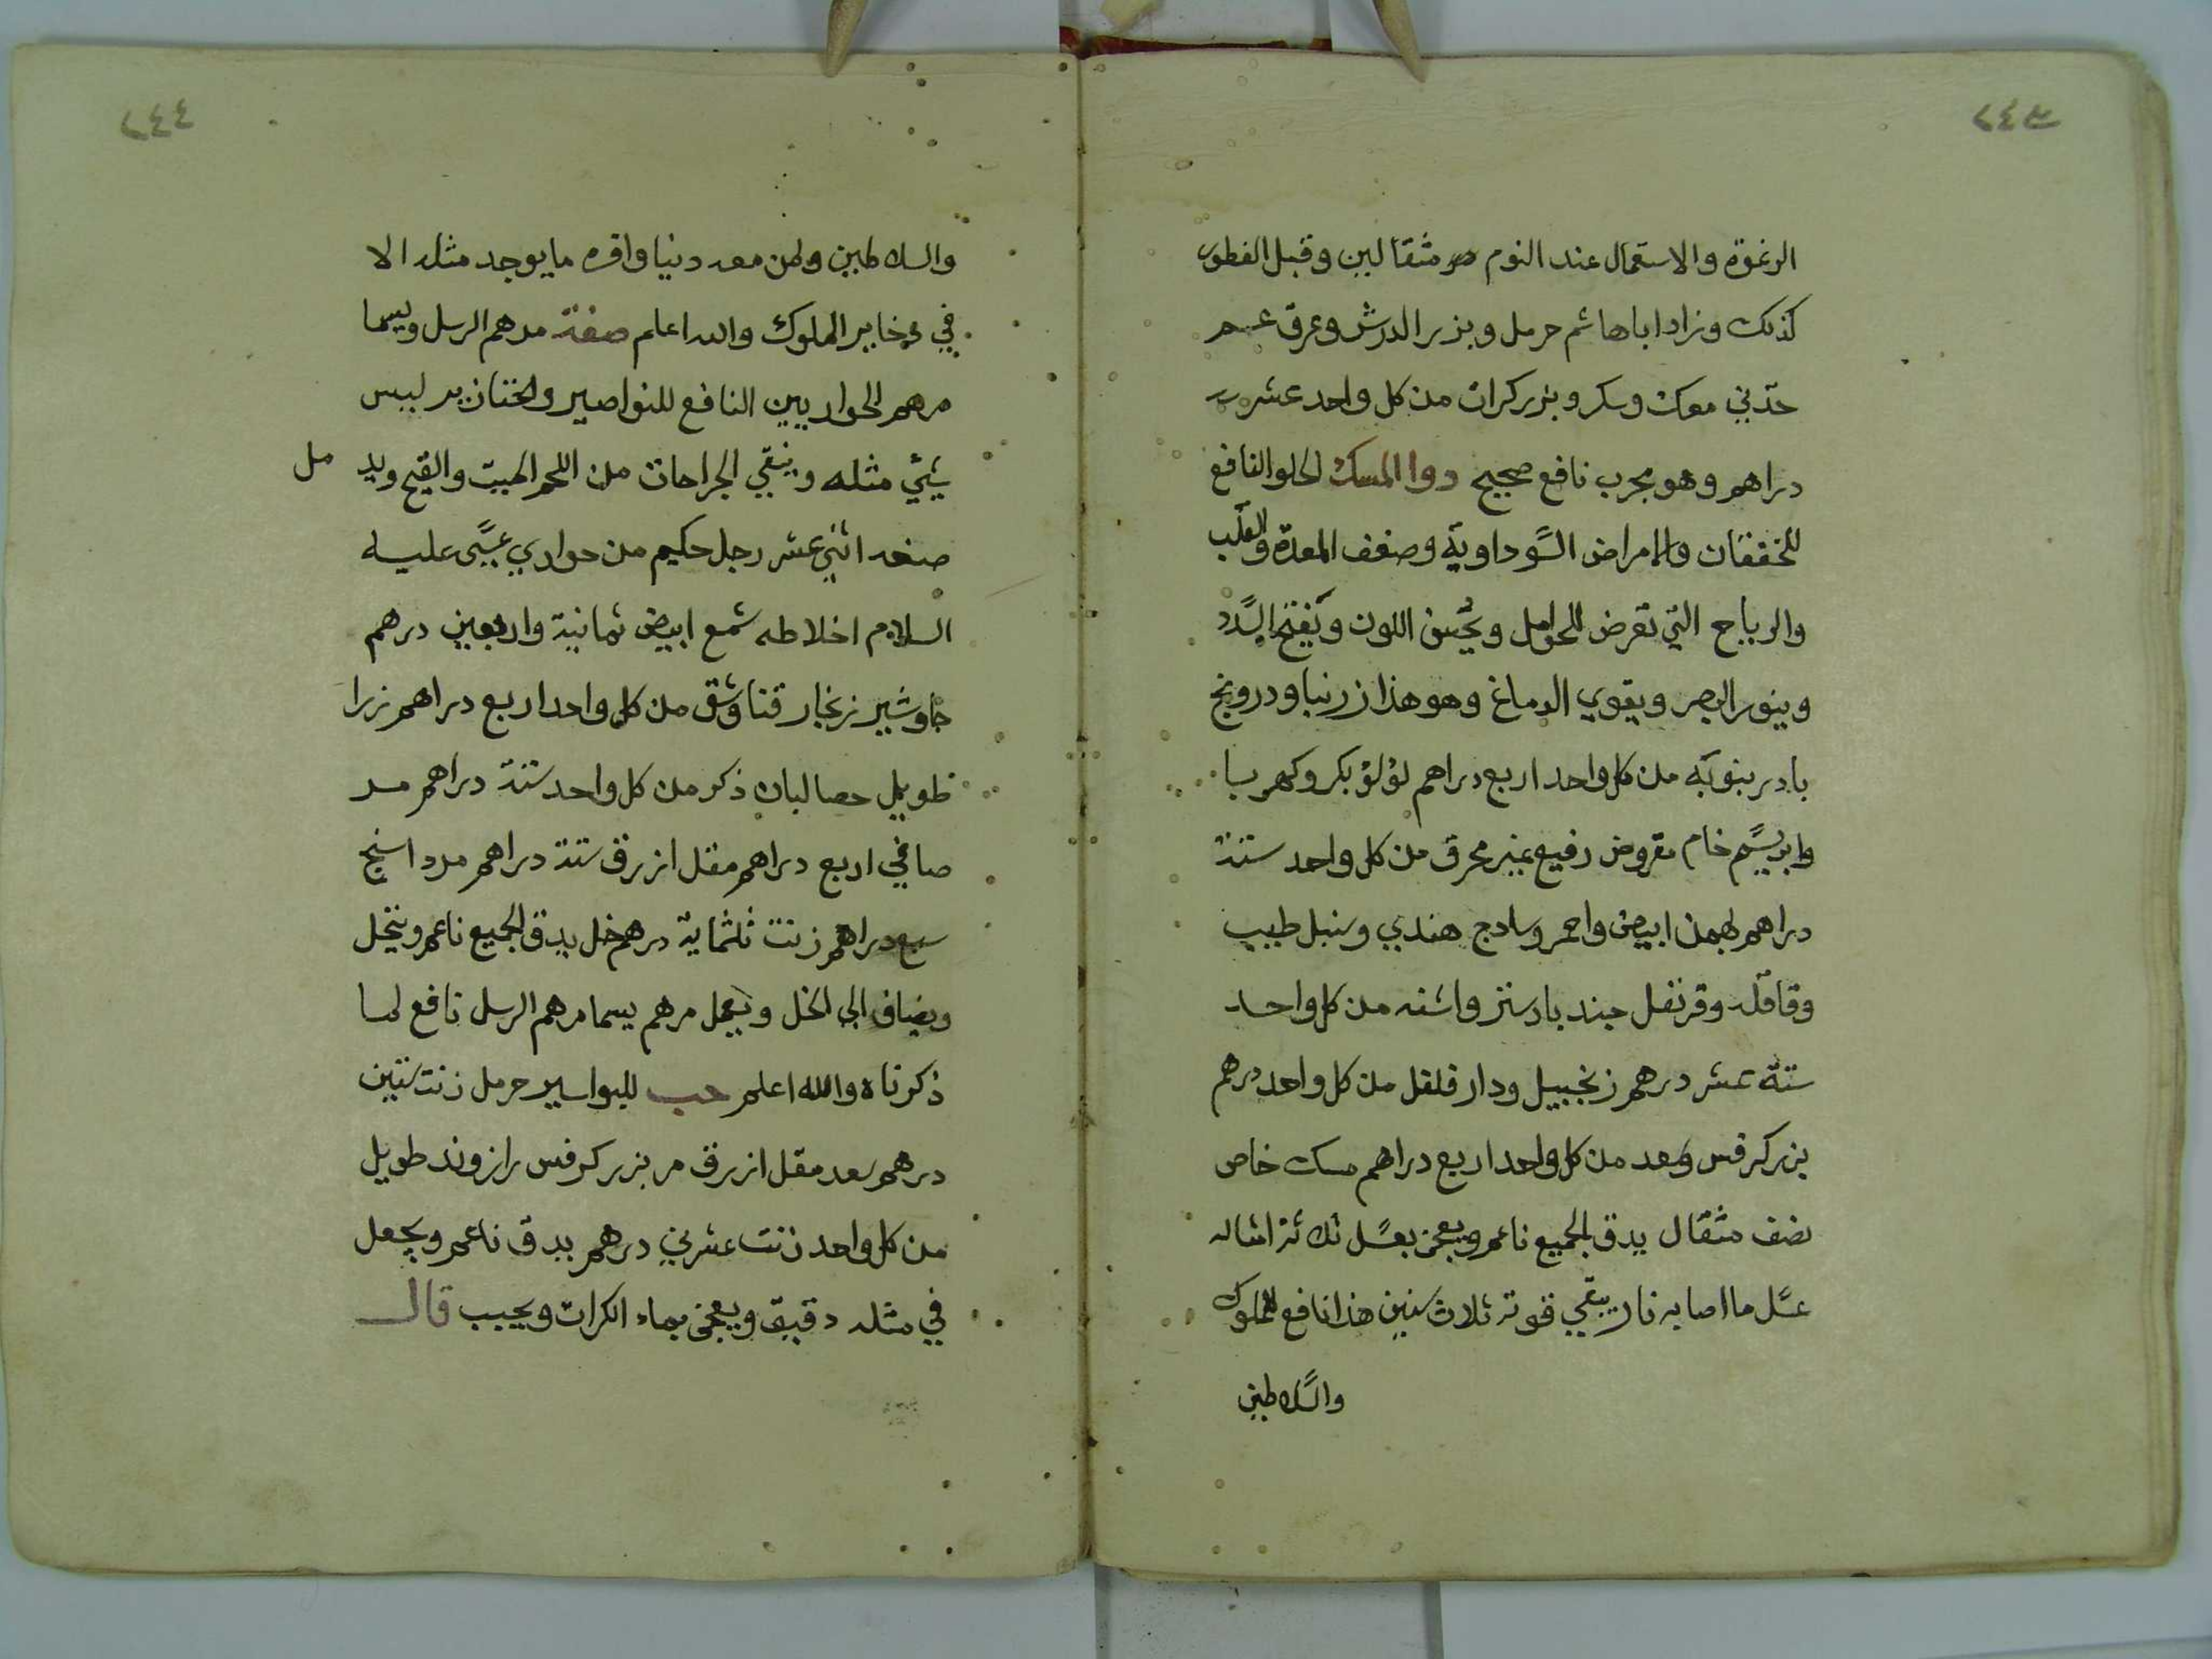 ٢٤٣
الرغوة والاستعمال عند النوم مثقالين وقبل الفطور
كذلك وزاد اباهاشم حرمل وبزر الدرش وعرق
حدني معك وسكر وبزر كرات من كل واحد عشرب
دراهم وهو مجرب نافع صحيح دوا المسك الحلو النافع
للخفقان والامراض السوداوية وضعف المعدة والقلب
والرياح التي تعرض للحوامل ويحسن اللون ويفتح السدد
وينور البصر ويقوي الدماغ وهو هذا زرنبا ودرونج
بادرينبويه من كل واحد اربع دراهم لؤلؤ بكر وكهربا
وابريسم خام مقروض رفيع غير محرق من كل واحد ستة
دراهم بهمن ابيض واحمر وسادج هندي وسنبل طيب
وقاقله وقرنفل جند بادستر واشنه من كل واحد
ستة عشر درهم زنجبيل ودار فلفل من كل واحد درهم
بزر كرفس وسعد من كل واحد اربع دراهم مسك خاص
نصف مثقال يدق الجميع ناعم ويعجن بعسل ثلاثة امثاله
عسل ما اصابه نار يبقي قوته ثلاث سنين هذا نافع للملوك
والسلاطين
٢٤٤
والسلاطين ولمن معه دنيا وافره ما يوجد مثله الا
في دخاير الملوك والله اعلم صفة مرهم الرسل ويسما
مرهم الحواريين النافع للنواصير والخنازير ليس
شيئ مثله وينقي الجراحات من اللحم الميت والقيح ويد مل
صنعه اثني عشر رجل حكيم من حواري عيسى عليه
السلام اخلاطه شمع ابيض ثمانية واربعين درهم
جاوشير زنجار قنا وشق من كل واحد اربع دراهم زرا
طويل حصا لبان ذكر من كل واحد ستة دراهم مر
صافي اربع دراهم مقل ازرق ستة دراهم مرداسنج
سبع دراهم زنت ثلثماية درهم خل يدق الجميع ناعم وينخل
ويضاف الى الخل ويعمل مرهم يسما مرهم الرسل نافع لما
ذكرناه والله اعلم حب للبواسير حرمل زنت ستين
درهم سعد مقل ازرق مر بزر كرفس رازوند طويل
من كل واحد زنت عشرين درهم يدق ناعم ويجعل
في مثله دقيق ويعجن بماء الكرات ويحبب قال